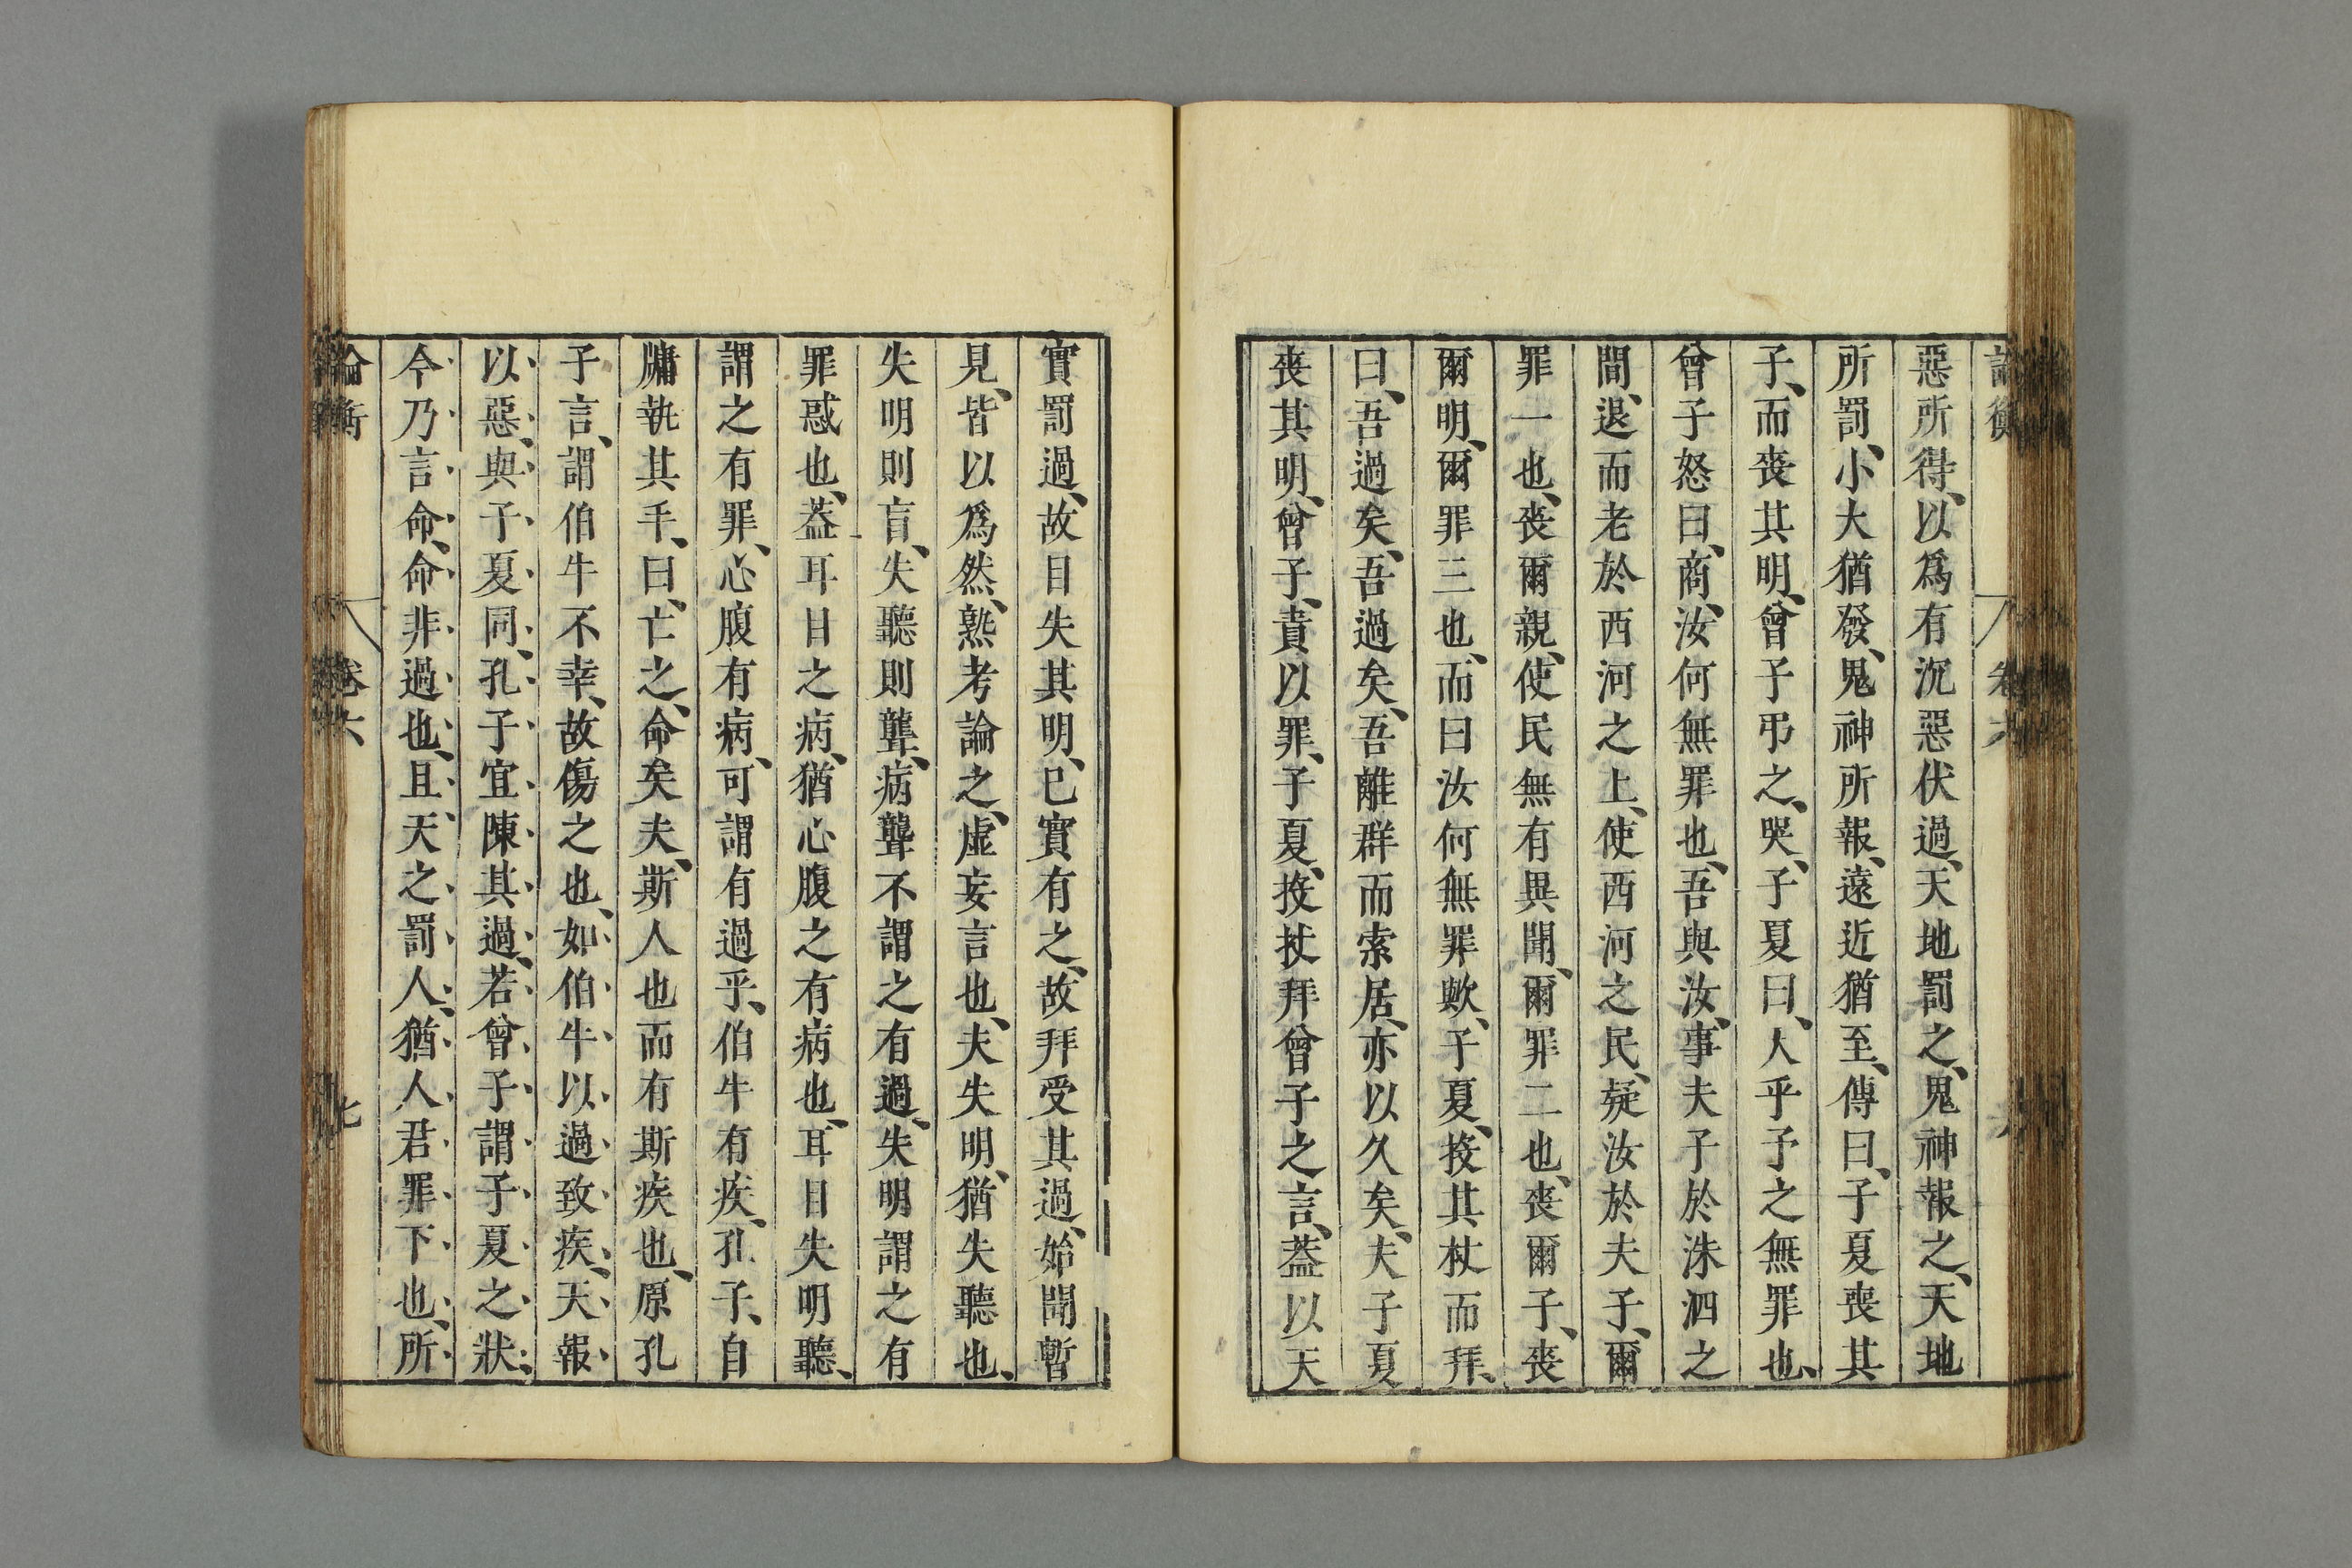 惡所得、以爲有沉惡伏過、天地罰之、鬼神報之、天地
所罰、小大猶發、鬼神所報、遠近猶至、傳曰、子夏喪其
子、而喪其明、曾子弔之、哭、子夏曰、天乎予之無罪也、
曾子怒曰、商、汝何無罪也、吾與汝、事夫子於洙泗之
間、退而老於西河之上、使西河之民、疑汝於夫子、爾
罪一也、喪爾親、使民無有異聞、爾罪二也、喪爾子、喪
爾明、爾罪三也、而曰汝何無罪歟、子夏、投其杖而拜、
曰、吾過矣、吾過矣、吾離群而索居、亦以久矣、夫子夏
喪其明、曾子、責以罪、子夏、投杖拜曾子之言、葢以天
實罰過、故目失其明、已實有之、故拜受其過、始聞暫
見、皆以爲然、熟考論之、虛妄言也、夫失明、猶失聽也、
失明則盲、失聽則聾、病聾不謂之有過、失明謂之有
罪惑也、葢耳目之病、猶心腹之有病也、耳目失明聽、
謂之有罪、心腹有病、可謂有過乎、伯牛有疾、孔子、自
牗執其手、曰、亡之、命矣夫、斯人也而有斯疾也、原孔
子言、謂伯牛不幸、故傷之也、如伯牛以過致疾、天報
以惡、與子夏同、孔子宜陳其過、若曾子謂子夏之狀、
今乃言命、命非過也、且天之罰人、猶人君罪下也、所
論衡 卷六 七